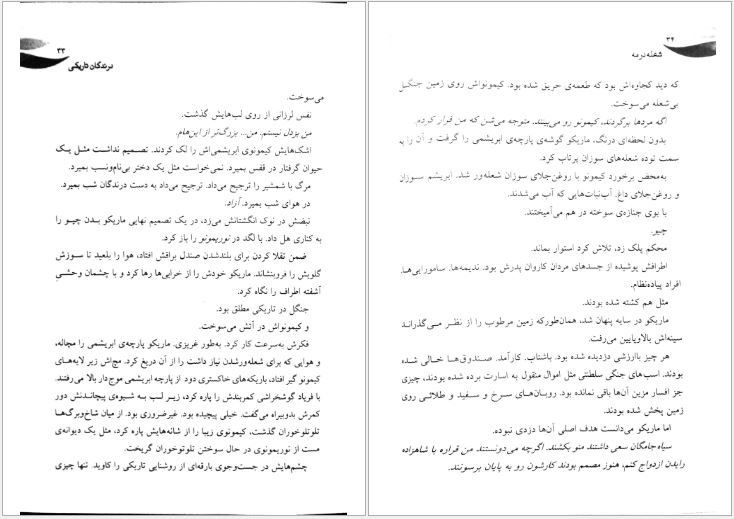 ۳۳
درندگان تاریکی
می‌سوخت.
نفس لرزانی از روی لب‌هایش گذشت.
من بزدل نیستم. من... بزرگ‌تر از این‌هام.
اشک‌هایش کیمونوی ابریشمی‌اش را لک کردند. تصمیم نداشت مثل یک
حیوان گرفتار در قفس بمیرد. نمی‌خواست مثل یک دختر بی‌نام‌ونسب بمیرد.
مرگ با شمشیر را ترجیح می‌داد. ترجیح می‌داد به دست درندگان شب بمیرد.
در هوای شب بمیرد. آزاد.
نبضش در نوک انگشتانش می‌زد، در یک تصمیم نهایی ماریکو بدن چیو را
به کناری هل داد. با لگد در نوریمونو را باز کرد.
ضمن تقلا کردن برای بلندشدن صندل براقش افتاد، هوا را بلعید تا سوزش
گلویش را فروبنشاند. ماریکو خودش را از خرابی‌ها رها کرد و با چشمان وحشیِ
آشفته اطراف را نگاه کرد.
جنگل در تاریکی مطلق بود.
و کیمونواش در آتش می‌سوخت.
فکرش به‌سرعت کار کرد. به‌طور غریزی. ماریکو پارچه‌ی ابریشمی را مچاله،
و هوایی که برای شعله‌ورشدن نیاز داشت را از آن دریغ کرد. مچ‌اش زیر لایه‌های
کیمونو گیر افتاد، باریکه‌های خاکستری دود از پارچه ابریشمی موج‌دار بالا می‌رفتند.
با فریاد گوشخراشی کمربندش را پاره کرد، زیر لب به شیوه‌ی پیچاندنش دور
کمرش بدوبیراه می‌گفت. خیلی پیچیده بود. غیرضروری بود. از میان شاخ‌وبرگ‌ها
تلوتلوخوران گذشت، کیمونوی زیبا را از شانه‌هایش پاره کرد، مثل یک دیوانه‌ی
مست از نوریمونوی در حال سوختن تلوتلوخوران گریخت.
چشم‌هایش در جست‌وجوی بارقه‌ای از روشنایی تاریکی را کاوید. تنها چیزی
۳۴
شعله در مه
که دید کجاوه‌اش بود که طعمه‌ی حریق شده بود. کیمونواش روی زمین جنگل
بی‌شعله می‌سوخت.
اگه مردها برگردند، کیمونو رو می‌بینند. متوجه می‌شن که من فرار کردم.
بدون لحظه‌ای درنگ، ماریکو گوشه‌ی پارچه‌ی ابریشمی را گرفت و آن را به
سمت توده شعله‌های سوزان پرتاب کرد.
به‌محض برخورد کیمونو با روغن‌جلای سوزان شعله‌ور شد. ابریشم سوزان
و روغن‌جلای داغ. آب‌نبات‌هایی که آب می‌شدند.
با بوی جنازه‌ی سوخته در هم می‌آمیختند.
چیو.
محکم پلک زد، تلاش کرد استوار بماند.
اطرافش پوشیده از جسدهای مردان کاروان پدرش بود. ندیمه‌ها. سامورایی‌ها.
افراد پیاده‌نظام.
مثل هم کشته شده بودند.
ماریکو در سایه پنهان شد، همان‌طورکه زمین مرطوب را از نظر می‌گذراند
سینه‌اش بالاوپایین می‌رفت.
هر چیز باارزشی دزدیده شده بود. باشتاب. کارآمد. صندوق‌ها خالی شده
بودند. اسب‌های جنگی سلطنتی مثل اموال منقول به اسارت برده شده بودند، چیزی
جز افسار مزین آن‌ها باقی نمانده بود. روبان‌های سرخ و سفید و طلائی روی
زمین پخش شده بودند.
اما ماریکو می‌دانست هدف اصلی آن‌ها دزدی نبوده.
سیاه‌جامگان سعی داشتند منو بکشند. اگرچه می‌دونستند من قراره با شاهزاده
رایدن ازدواج کنم، هنوز مصمم بودند کارشون رو به پایان برسونند.